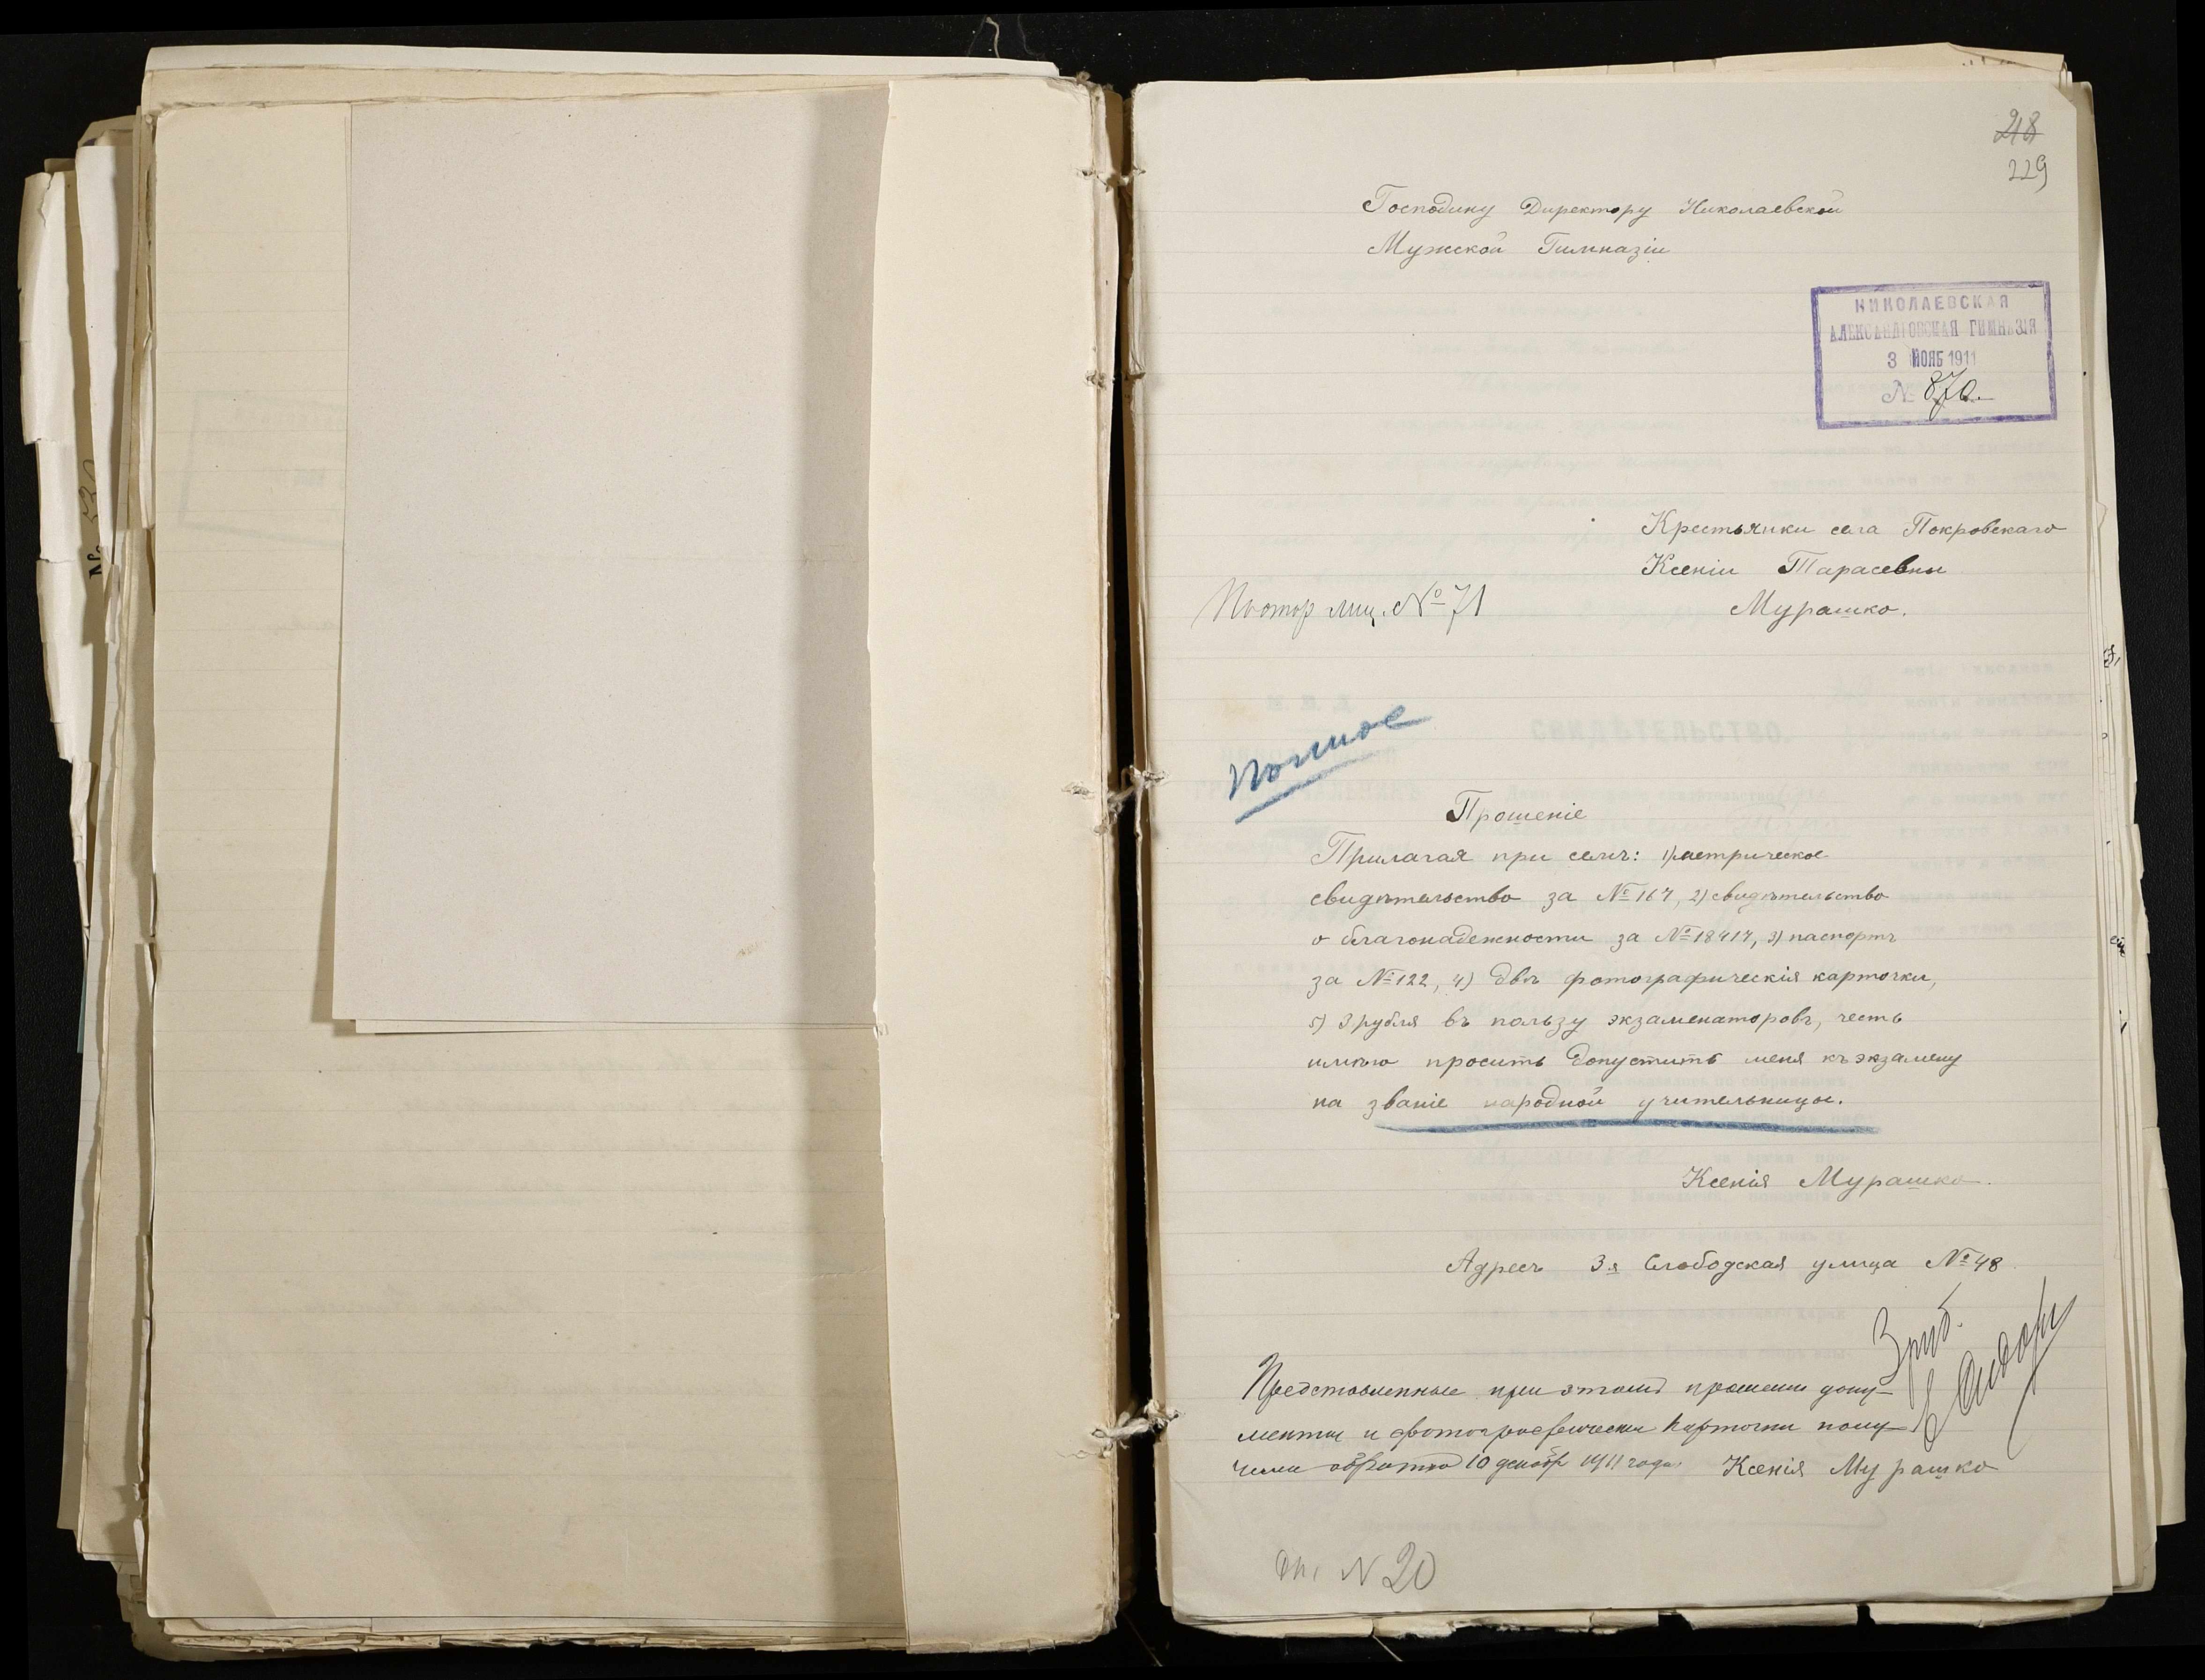 218
229
Господину Директору Николаевской
Мужской Гимназіи
НИКОЛАЕВСКАЯ
АЛЕКСАНДРОВСКАЯ ГИМНАЗІЯ
3 НОЯБ 1911
№ 870.
Крестьянки села Покровскаго
Ксеніи Тарасевны
Мурашко.
№ 71
Полное
Прошеніе
Прилагая при семъ: 1) метрическое
свидѣтельство за № 167, 2) свидѣтельство
о благонадежности за № 18417, 3) паспортъ
за № 122, 4) двѣ фотографическія карточки,
5) 3 рубля въ пользу экзаменаторовъ, честь
имѣю просить допустить меня къ экзамену
на званіе народной учительницы.
Ксенія Мурашко.
Адресъ 3я Слободская улица № 48
3 руб.
Представленные при этомъ прошеніи доку-
менты и фотографически карточки полу-
чила обратно 10 декабр 1911 года. Ксенія Мурашко
N 20